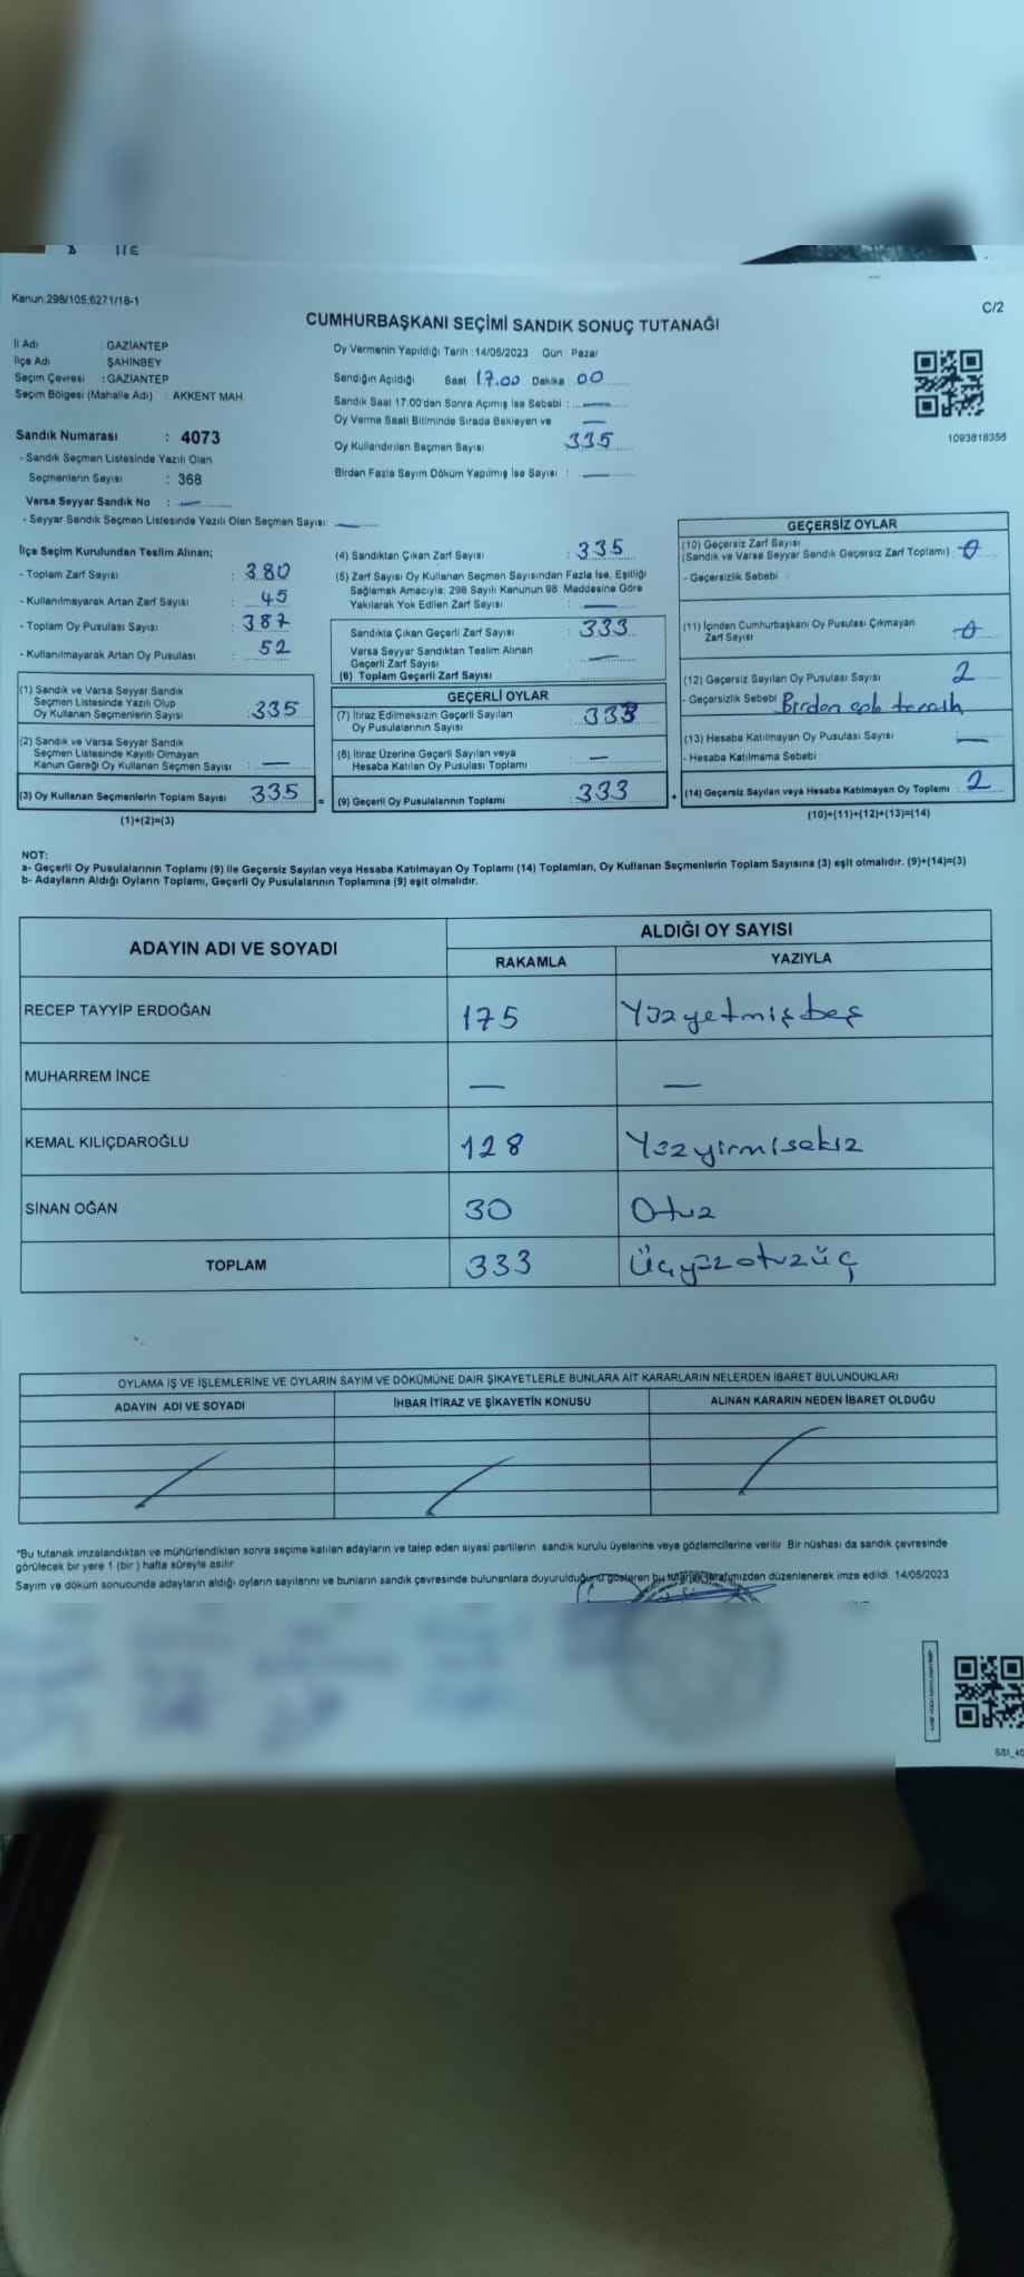 Kanun.298/105.6271/18-1
C/2
CUMHURBAŞKANI SEÇİMİ SANDIK SONUÇ TUTANAĞI
İl Adı : GAZİANTEP
İlçe Adı : ŞAHİNBEY
Seçim Çevresi : GAZİANTEP
Seçim Bölgesi (Mahalle Adı) : AKKENT MAH.
Sandık Numarası : 4073
- Sandık Seçmen Listesinde Yazılı Olan
Seçmenlerin Sayısı : 368
Varsa Seyyar Sandık No : —
- Seyyar Sandık Seçmen Listesinde Yazılı Olan Seçmen Sayısı: —
Oy Vermenin Yapıldığı Tarih : 14/05/2023 Gün Pazar
Sandığın Açıldığı Saat 17.00 Dakika 00
Sandık Saat 17:00'dan Sonra Açılmış İse Sebebi : —
Oy Verme Saati Bitiminde Sırada Bekleyen ve —
Oy Kullandırılan Seçmen Sayısı 335
Birden Fazla Sayım Döküm Yapılmış İse Sayısı : —
1093818356
İlçe Seçim Kurulundan Teslim Alınan;
- Toplam Zarf Sayısı : 380
- Kullanılmayarak Artan Zarf Sayısı : 45
- Toplam Oy Pusulası Sayısı : 387
- Kullanılmayarak Artan Oy Pusulası : 52
(1) Sandık ve Varsa Seyyar Sandık
Seçmen Listesinde Yazılı Olup
Oy Kullanan Seçmenlerin Sayısı : 335
(2) Sandık ve Varsa Seyyar Sandık
Seçmen Listesinde Kayıtlı Olmayan
Kanun Gereği Oy Kullanan Seçmen Sayısı : —
(3) Oy Kullanan Seçmenlerin Toplam Sayısı : 335
(1)+(2)=(3)
(4) Sandıktan Çıkan Zarf Sayısı : 335
(5) Zarf Sayısı Oy Kullanan Seçmen Sayısından Fazla İse, Eşitliği
Sağlamak Amacıyla; 298 Sayılı Kanunun 98. Maddesine Göre
Yakılarak Yok Edilen Zarf Sayısı : —
Sandıkta Çıkan Geçerli Zarf Sayısı : 333
Varsa Seyyar Sandıktan Teslim Alınan
Geçerli Zarf Sayısı : —
(6) Toplam Geçerli Zarf Sayısı :
GEÇERLİ OYLAR
(7) İtiraz Edilmeksizin Geçerli Sayılan
Oy Pusulalarının Sayısı : 333
(8) İtiraz Üzerine Geçerli Sayılan veya
Hesaba Katılan Oy Pusulası Toplamı : —
= (9) Geçerli Oy Pusulalarının Toplamı : 333
GEÇERSİZ OYLAR
(10) Geçersiz Zarf Sayısı
(Sandık ve Varsa Seyyar Sandık Geçersiz Zarf Toplamı) : 0
- Geçersizlik Sebebi
(11) İçinden Cumhurbaşkanı Oy Pusulası Çıkmayan
Zarf Sayısı 0
(12) Geçersiz Sayılan Oy Pusulası Sayısı 2
- Geçersizlik Sebebi Birden çok tercih
(13) Hesaba Katılmayan Oy Pusulası Sayısı —
- Hesaba Katılmama Sebebi
+ (14) Geçersiz Sayılan veya Hesaba Katılmayan Oy Toplamı : 2
(10)+(11)+(12)+(13)=(14)
NOT:
a- Geçerli Oy Pusulalarının Toplamı (9) ile Geçersiz Sayılan veya Hesaba Katılmayan Oy Toplamı (14) Toplamları, Oy Kullanan Seçmenlerin Toplam Sayısına (3) eşit olmalıdır. (9)+(14)=(3)
b- Adayların Aldığı Oyların Toplamı, Geçerli Oy Pusulalarının Toplamına (9) eşit olmalıdır.
ADAYIN ADI VE SOYADI
ALDIĞI OY SAYISI
RAKAMLA YAZIYLA
RECEP TAYYİP ERDOĞAN 175 Yüzyetmişbeş
MUHARREM İNCE — —
KEMAL KILIÇDAROĞLU 128 Yüzyirmisekiz
SİNAN OĞAN 30 Otuz
TOPLAM 333 Üçyüzotuzüç
OYLAMA İŞ VE İŞLEMLERİNE VE OYLARIN SAYIM VE DÖKÜMÜNE DAİR ŞİKAYETLERLE BUNLARA AİT KARARLARIN NELERDEN İBARET BULUNDUKLARI
ADAYIN ADI VE SOYADI İHBAR İTİRAZ VE ŞİKAYETİN KONUSU ALINAN KARARIN NEDEN İBARET OLDUĞU
*Bu tutanak imzalandıktan ve mühürlendikten sonra seçime katılan adayların ve talep eden siyasi partilerin sandık kurulu üyelerine veya gözlemcilerine verilir. Bir nüshası da sandık çevresinde
görülecek bir yere 1 (bir) hafta süreyle asılır.
Sayım ve döküm sonucunda adayların aldığı oyların sayılarını ve bunların sandık çevresinde bulunanlara duyurulduğunu gösteren bu tutanak tarafımızdan düzenlenerek imza edildi. 14/05/2023